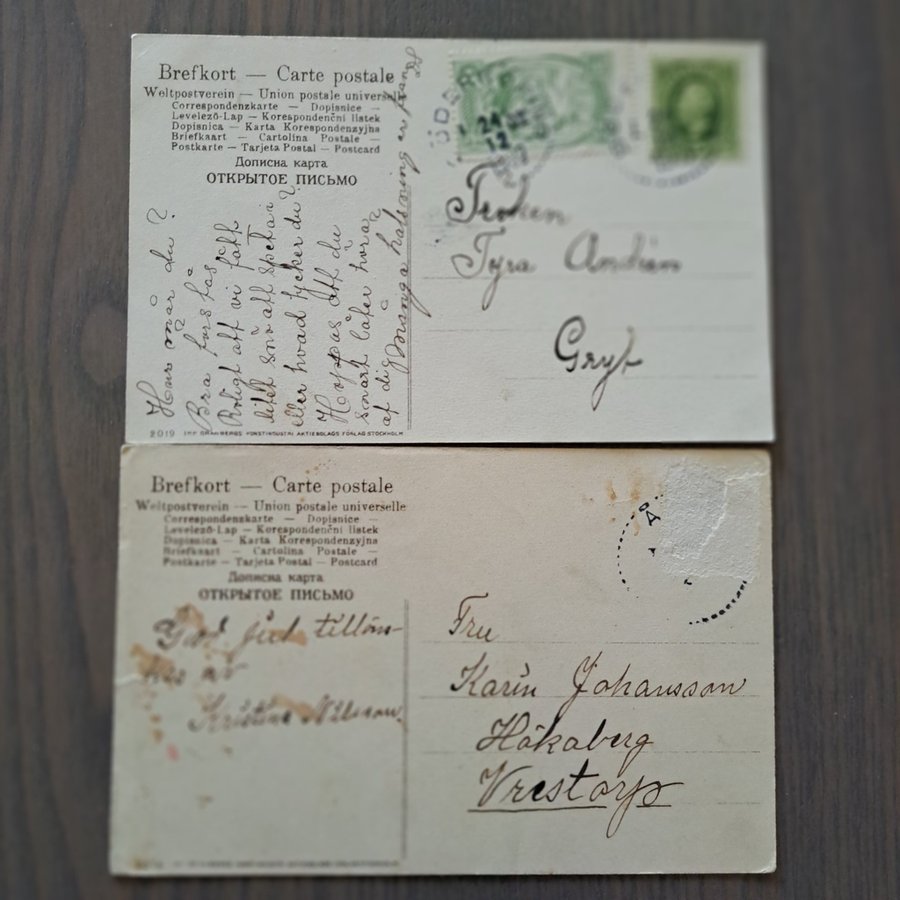 Brefkort — Carte postale
Weltpostverein — Union postale universelle
Correspondenzkarte — Dopisnice —
Levelező-Lap — Korespondenčni listek
Dopisnica — Karta Korespondenzyjna
Briefkaart — Cartolina Postale —
Postkarte — Tarjeta Postal — Postcard
Дописна карта
ОТКРЫТОЕ ПИСЬМО
Hur mår du?
Bra förstås
Roligt att vi fått
litet snö att sparka
eller hvad tycker du?
Hoppas att du
snart låter höra
af dig
många hälsning
24
12
Fröken
Tyra
Gryt
2019
KONSTINDUSTRI AKTIEBOLAGS FÖRLAG STOCKHOLM
Brefkort — Carte postale
Weltpostverein — Union postale universelle
Correspondenzkarte — Dopisnice —
Levelező-Lap — Korespondenčni listek
Dopisnica — Karta Korespondenzyjna
Briefkaart — Cartolina Postale —
Postkarte — Tarjeta Postal — Postcard
Дописна карта
ОТКРЫТОЕ ПИСЬМО
God jul tillöns-
kas av
Kristina Nilsson.
Fru
Karin Johansson
Håkaberg
Vrestorp